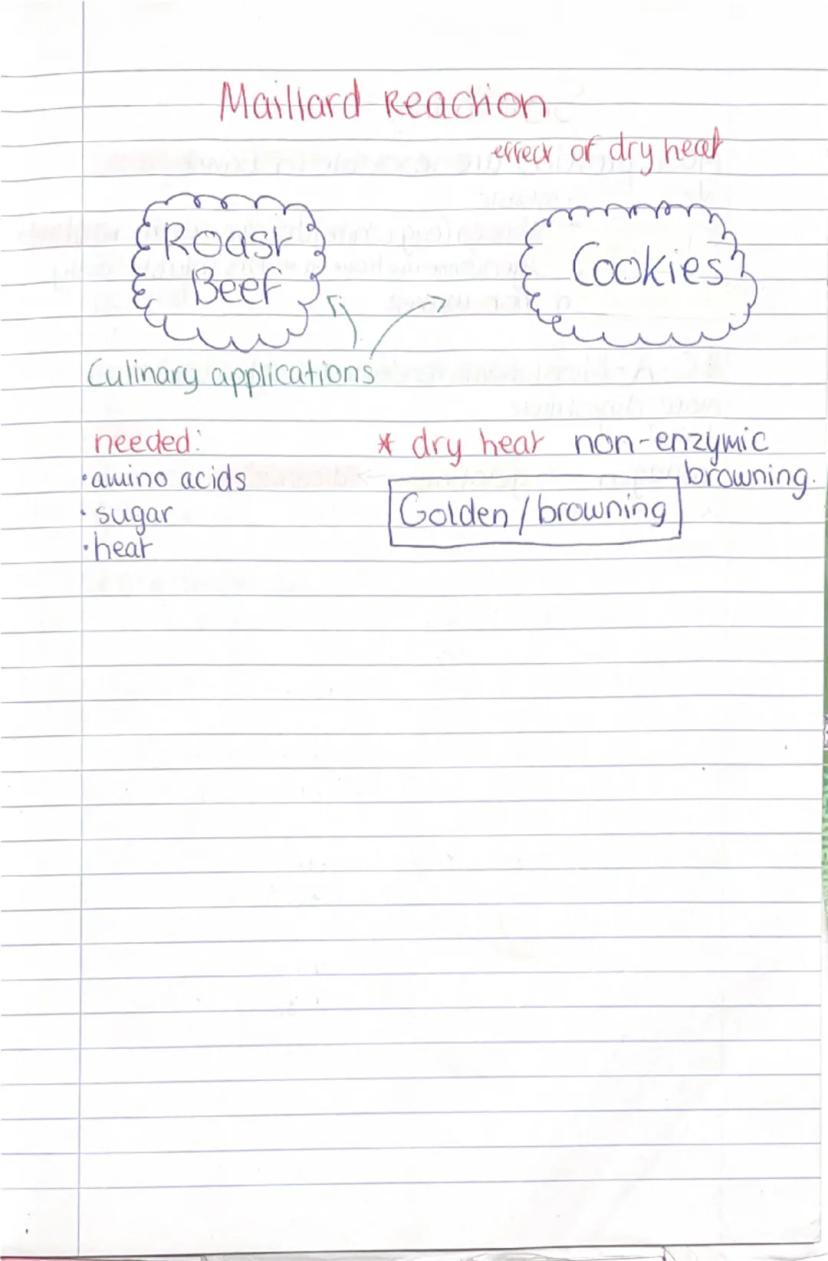 Maillard Reaction
effect of dry heat
Roast
Beef
Cookies
Culinary applications
needed:
• amino acids
• sugar
• heat
* dry heat non-enzymic
browning.
Golden / browning